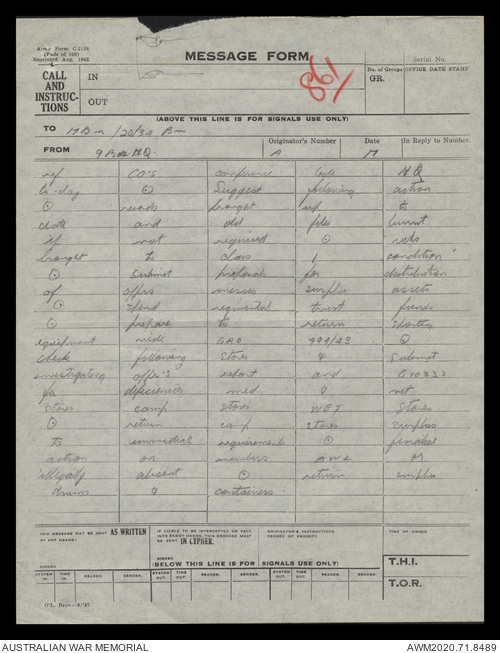 Army Form C.2128
(Pads of 100)
Reprinted Aug. 1942
MESSAGE FORM
Serial No.
CALL AND INSTRUCTIONS
IN
OUT
861
No. of Groups
GR.
OFFICE DATE STAMP
(ABOVE THIS LINE IS FOR SIGNALS USE ONLY)
TO 19 Bn /20/30 Bn
Originator's Number
Date
In Reply to Number.
FROM 9 Bde HQ.
A
M
ref CO'S conference HQ
to-day ⊙ Suggest following action
⊙ records brought up to
date and old files burnt
if not required ⊙
brought to class 1 condition
⊙ Submit proposals for distribution
of offrs messes surplus assets
⊙ spend regimental trust funds
⊙ prepare to return sporting
equipment vide GRO 999/43 ⊙
check following stores & submit
investigating offr's report and
for deficiencies med & vet
stores camp stores WET stores
⊙ return camp stores surplus
to immediate requirements ⊙ finalise
action on members AWL
illegally absent ⊙ return surplus
drums & containers.
THIS MESSAGE MAY BE SENT AS WRITTEN
BY ANY MEANS.
SIGNED
IF LIABLE TO BE INTERCEPTED OR FALL
INTO ENEMY HANDS, THIS MESSAGE MUST
BE SENT IN CYPHER.
SIGNED
ORIGINATOR'S INSTRUCTIONS
DEGREE OF PRIORITY.
TIME OF ORIGIN
(BELOW THIS LINE IS FOR SIGNALS USE ONLY)
T.H.I.
SYSTEM IN. TIME IN. READER. SENDER. SYSTEM OUT. TIME OUT. READER. SENDER. SYSTEM OUT. TIME OUT. READER. SENDER.
T.O.R.
AUSTRALIAN WAR MEMORIAL
AWM2020.71.8489